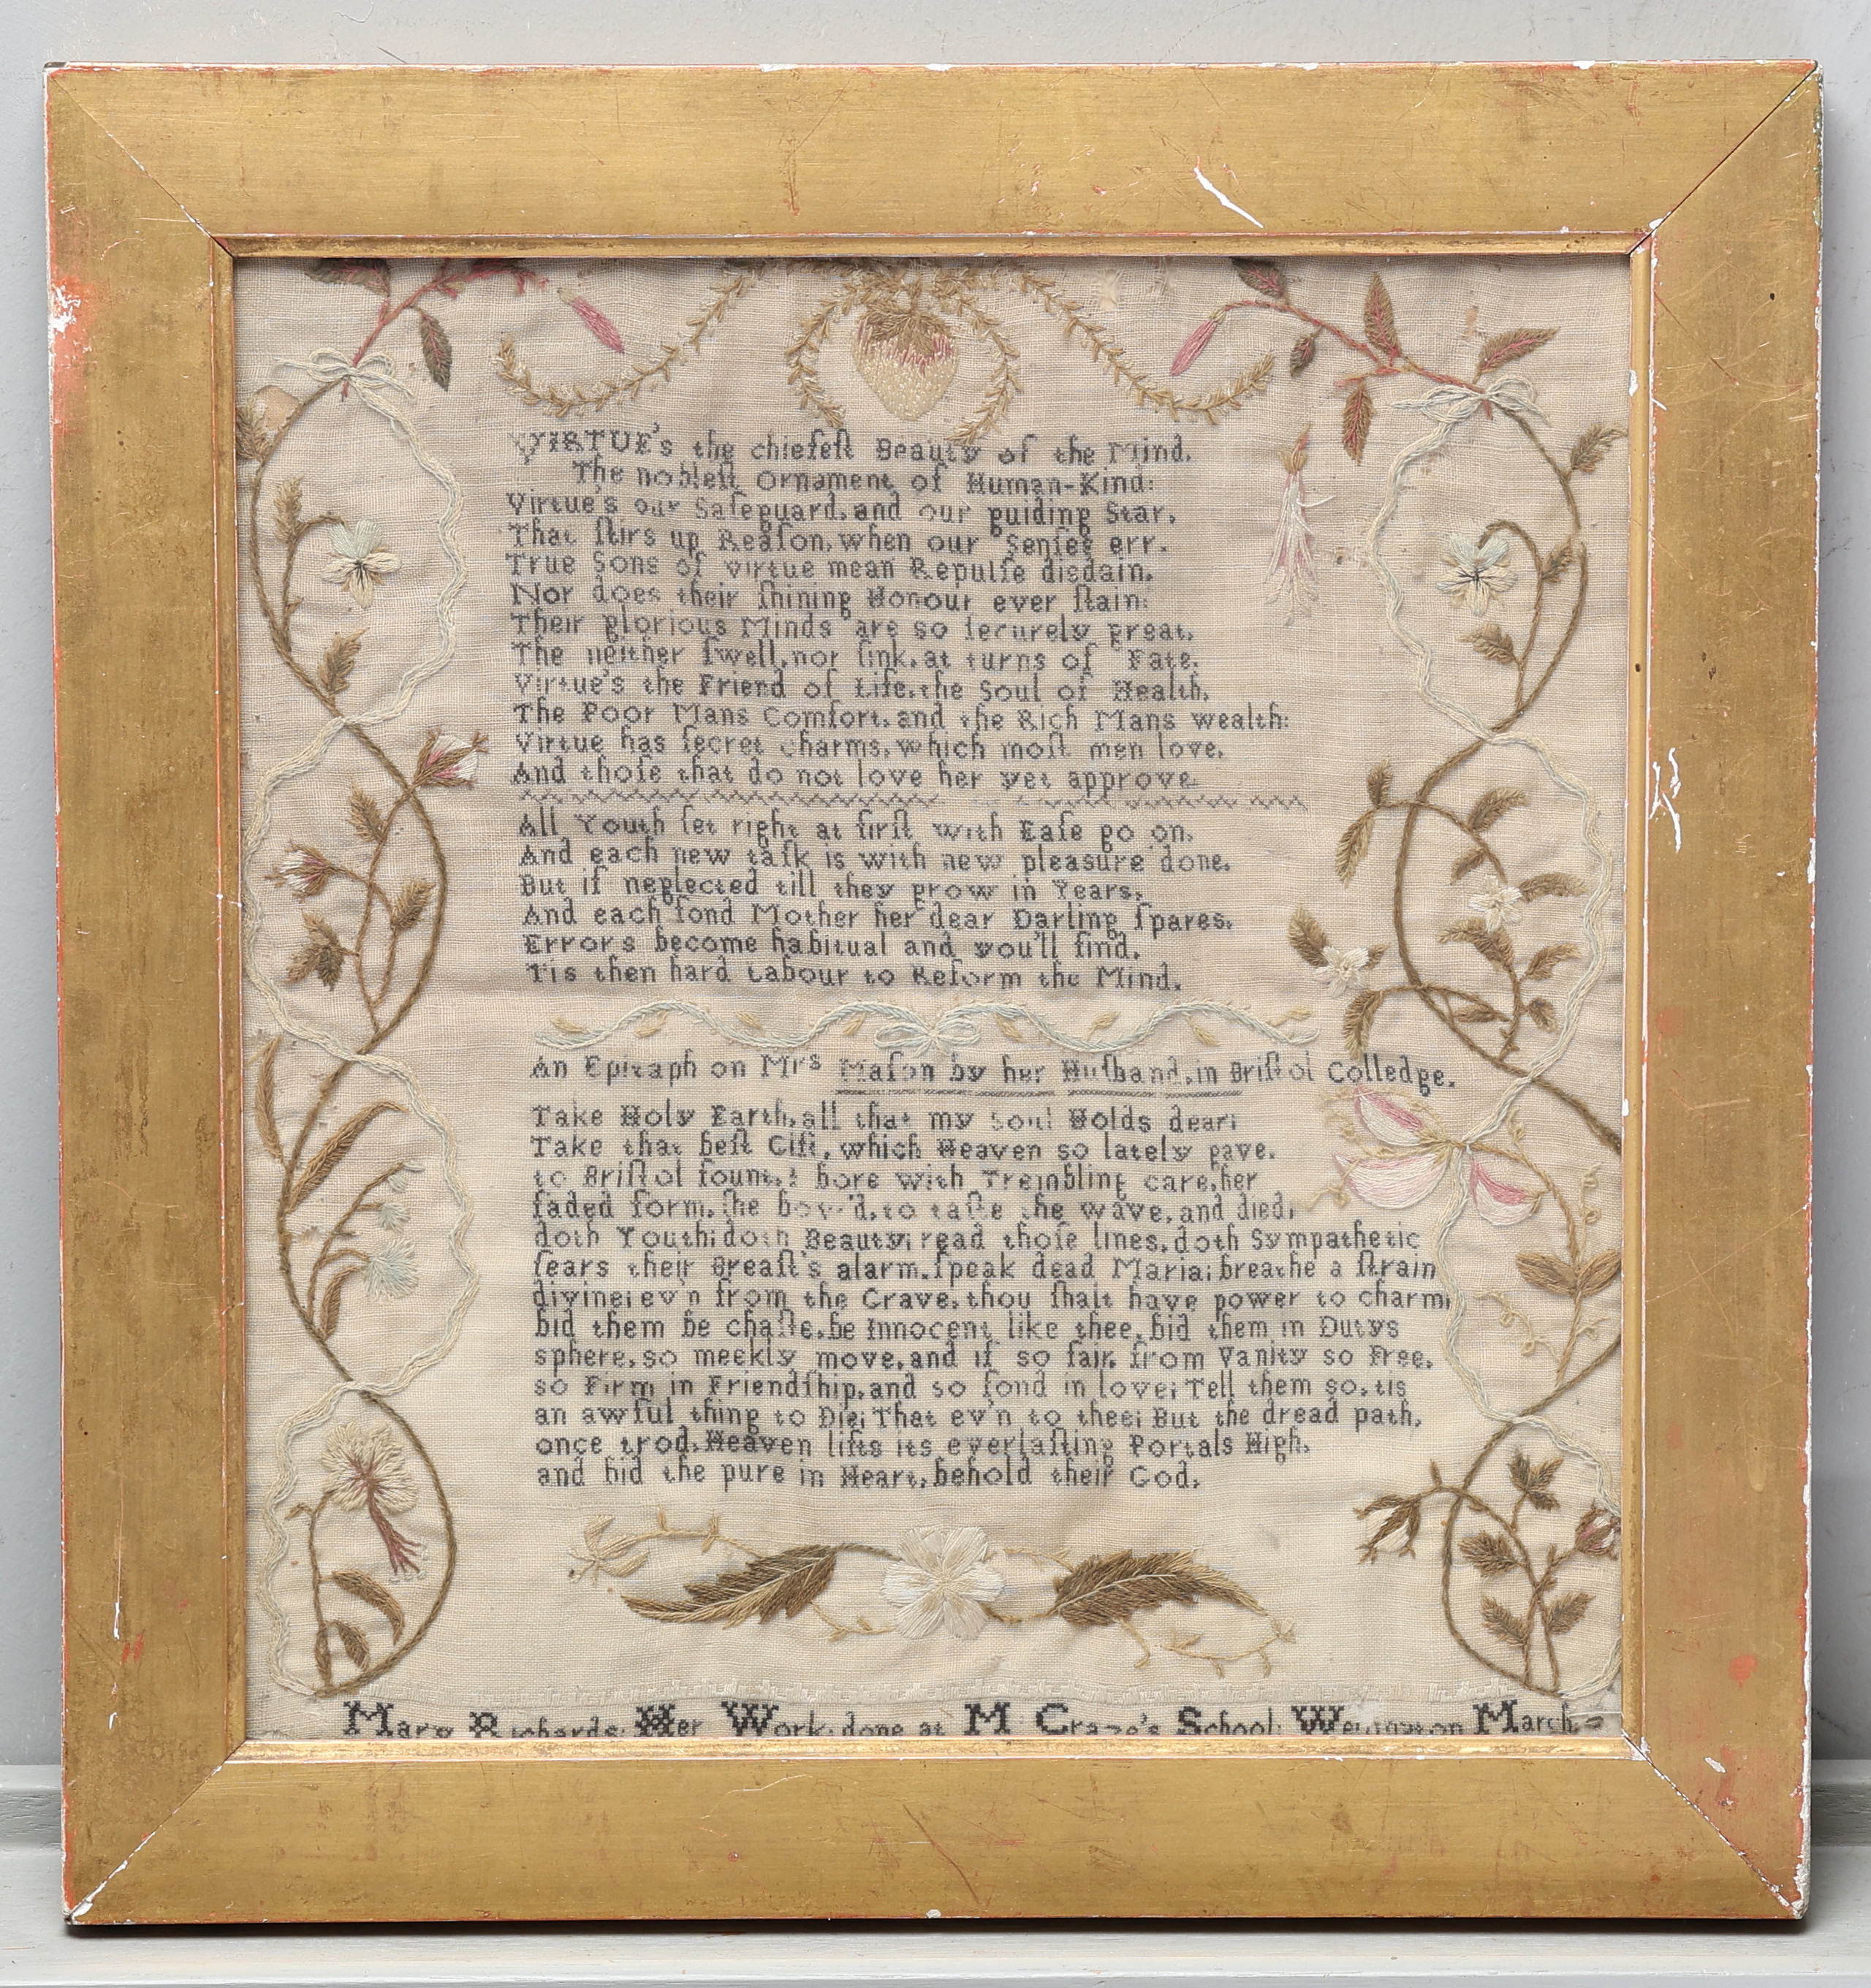 VIRTUE's the chiefeſt Beauty of the Mind,
The nobleſt Ornament of Human-Kind:
Virtue's our Safeguard, and our guiding Star,
That ſtirs up Reaſon, when our Senſes err.
True Sons of virtue mean Repulſe disdain,
Nor does their ſhining Honour ever ſtain:
Their glorious Minds are so ſecurely great,
The neither ſwell, nor ſink, at turns of Fate.
Virtue's the Friend of Life, the Soul of Health,
The Poor Mans Comfort, and the Rich Mans wealth:
Virtue has ſecret charms, which moſt men love,
And thoſe that do not love her yet approve
All Youth ſet right at firſt with Eaſe go on,
And each new taſk is with new pleasure done,
But if neglected till they grow in Years,
And each fond Mother her dear Darling ſpares,
Errors become habitual and you'll find,
Tis then hard Labour to Reform the Mind.
An Epitaph on Mrs Maſon by her Huſband, in Briſtol Colledge.
Take Holy Earth, all that my Soul Holds dear;
Take that beſt Gift, which Heaven so lately gave,
to Briſtol fount, I bore with Trembling care, her
faded form, ſhe bow'd, to taſte the wave, and died,
doth Youth; doth Beauty; read thoſe lines, doth Sympathetic
fears their Breaſt's alarm, ſpeak dead Maria; breathe a ſtrain
divine; ev'n from the Grave, thou ſhalt have power to charm,
bid them be chaſte, be Innocent like thee, bid them in Dutys
sphere, so meekly move, and if so fair, from Vanity so Free,
so Firm in Friendſhip, and so fond in love; Tell them so, tis
an awful thing to Die; That ev'n to thee; But the dread path,
once trod, Heaven lifts its everlaſting Portals High,
and bid the pure in Heart, behold their God.
Mary Richards: Her Work: done at M Craze's School: March